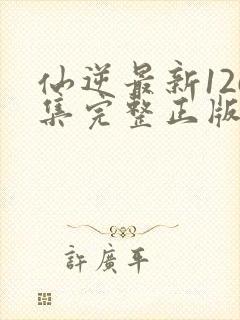 仙逆最新12
集完整正版
許廣平